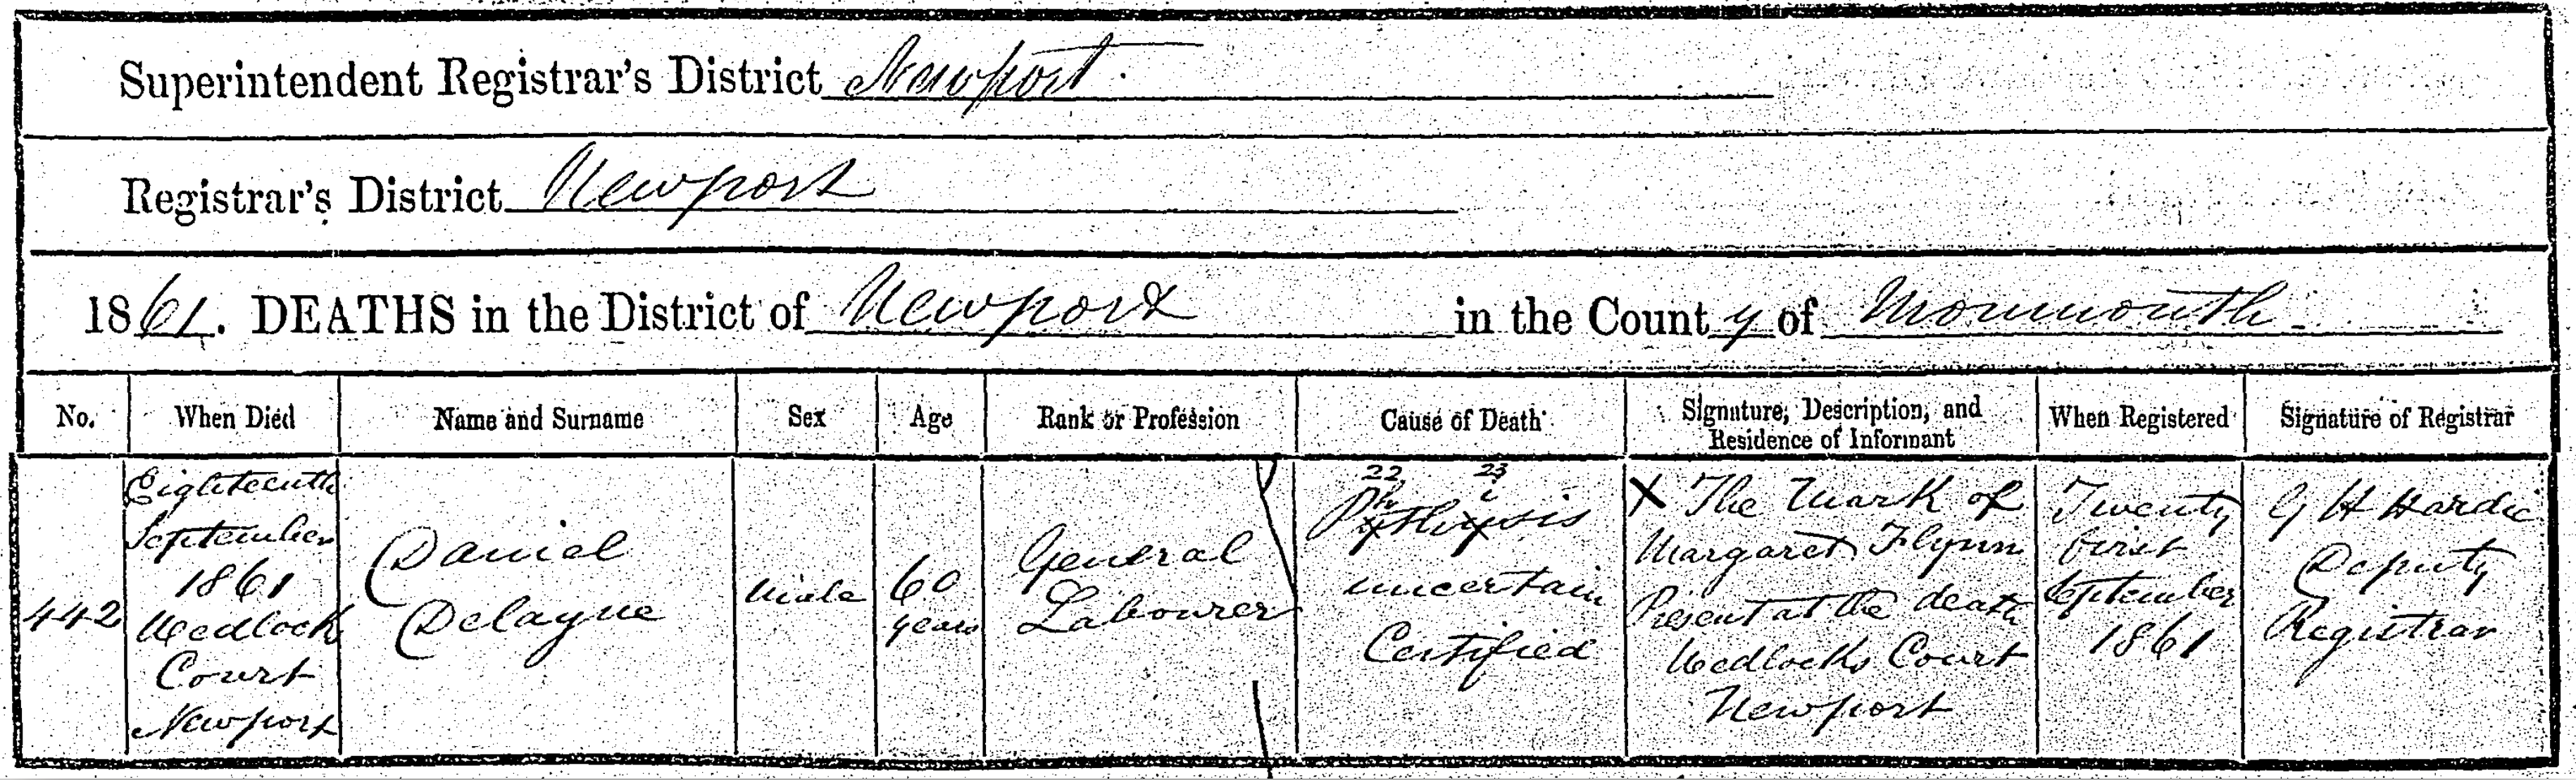 Superintendent Registrar's District Newport.
Registrar's District Newport
1861. DEATHS in the District of Newport in the County of Monmouth
No. When Died Name and Surname Sex Age Rank or Profession Cause of Death Signature, Description, and Residence of Informant When Registered Signature of Registrar
442
Eighteenth
September
1861
Wedlock
Court
Newport
Daniel
Delayne
Male
60
years
General
Labourer
22 23
Phthisis
uncertain
Certified
X The Mark of
Margaret Flynn
Present at the death
Wedlocks Court
Newport
Twenty
first
September
1861
G H Hardie
Deputy
Registrar